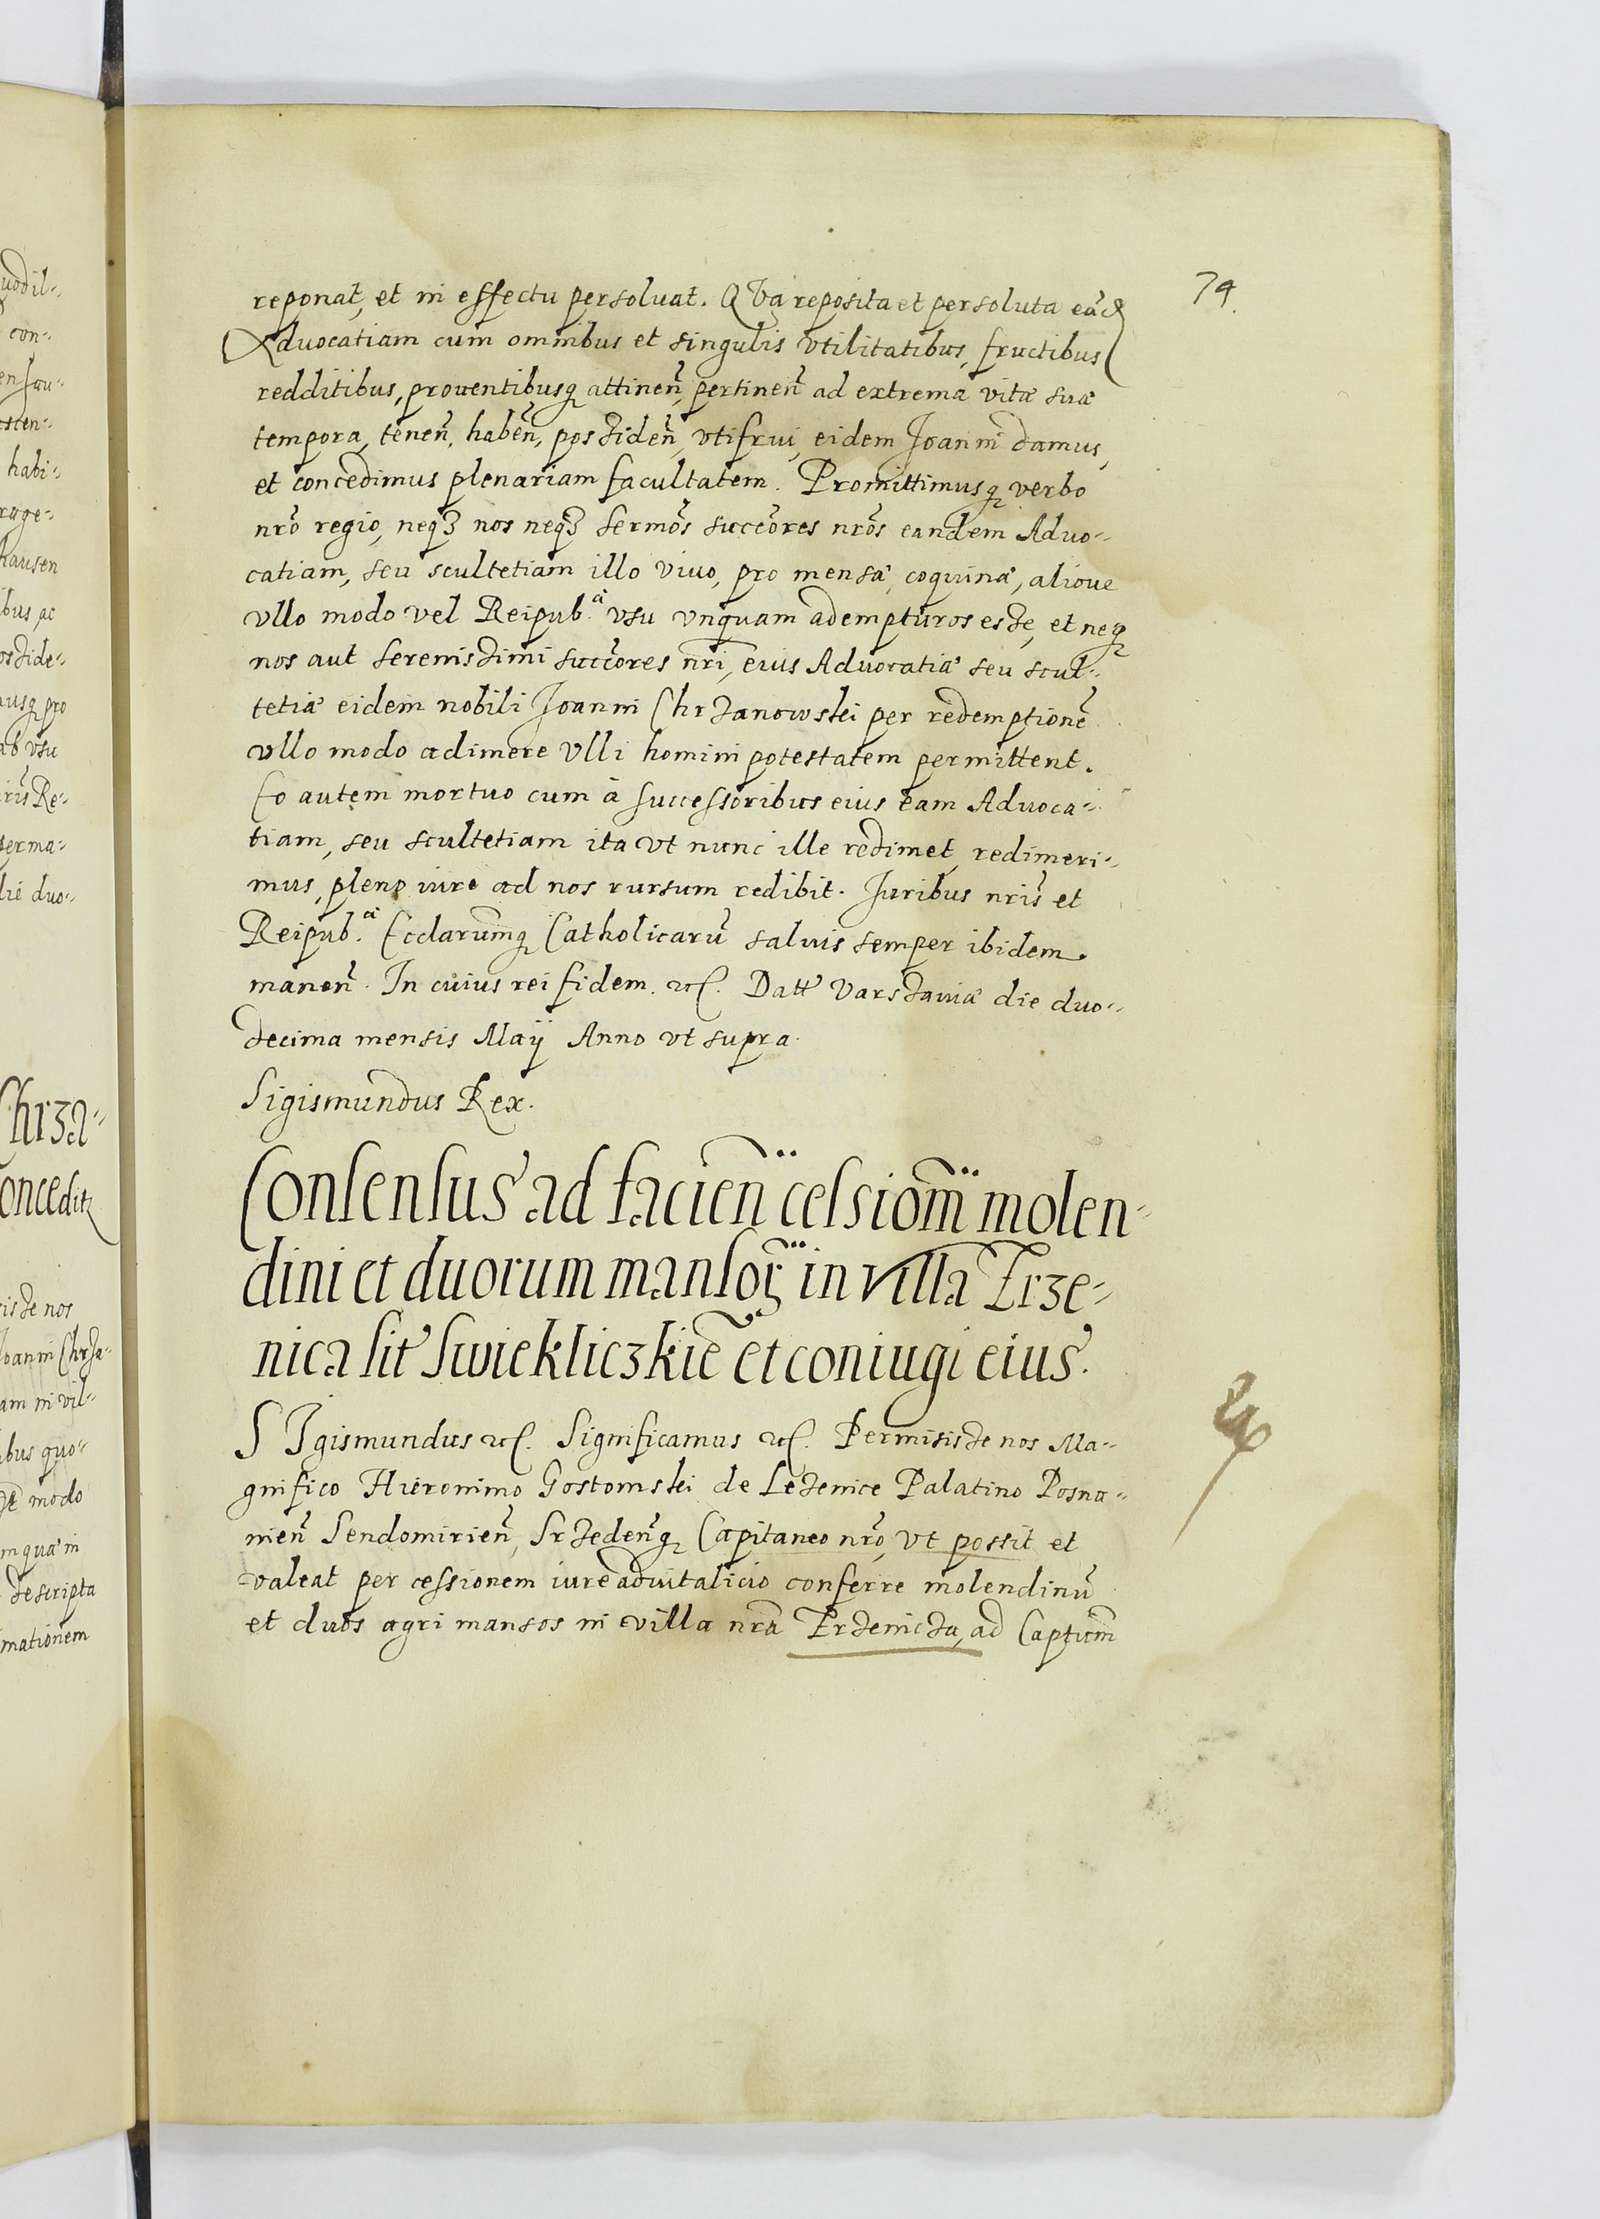 74.
reponat, et in effectu persoluat. QVa reposita et persoluta eãd
Aduocatiam cum omnibus et singulis vtilitatibus, fructibus
redditibus, prouentibusq, attineñ, pertineñ ad extrema vitæ suæ
tempora, teneñ, habeñ, possideñ, vtifrui, eidem Joanni damus,
et concedimus plenariam facultatem. Promittimusq verbo
nrõ regio, neqз nos neqз sermõs succõres nrõs eandem Aduo-
catiam, seu scultetiam illo viuo, pro mensæ, coquinæ, alioue
vllo modo vel Reipub.æ vsu vnquam adempturos esse, et neq
nos aut serenissimi succõres nrĩ, eius Aduocatiæ seu scul-
tetiæ eidem nobili Joanni Chrzanowski per redemptionẽ
vllo modo adimere vlli homini potestatem permittent.
Eo autem mortuo cum à successoribus eius eam Aduoca-
tiam, seu scultetiam ita vt nunc ille redimet, redimeri-
mus, pleno iure ad nos rursum redibit. Juribus nrĩs et
Reipub.æ Ecclarumq Catholicarũ saluis semper ibidem
maneñ. In cuius rei fidem etc. Datt Varssauiæ die duo-
decima mensis Maÿ Anno vt supra.
Sigismundus Rex.
Consensus ad facieñ celsiom̃ molen-
dini et duorum mansoꝝ in villa Trze-
nica sit Swiekliczkie et coniugi eius.
SIgismundus etc. Significamus etc. Permisisse nos Ma-
gnifico Hieronimo Gostomski de Lezenice Palatino Posna-
nieñ Sendomirieñ, Srzedeñq Capitaneo nrõ, vt possit et
valeat per cessionem iure aduitalicio conferre molendinũ
et duos agri mansos in villa nrã Trzenicza, ad Captum̃